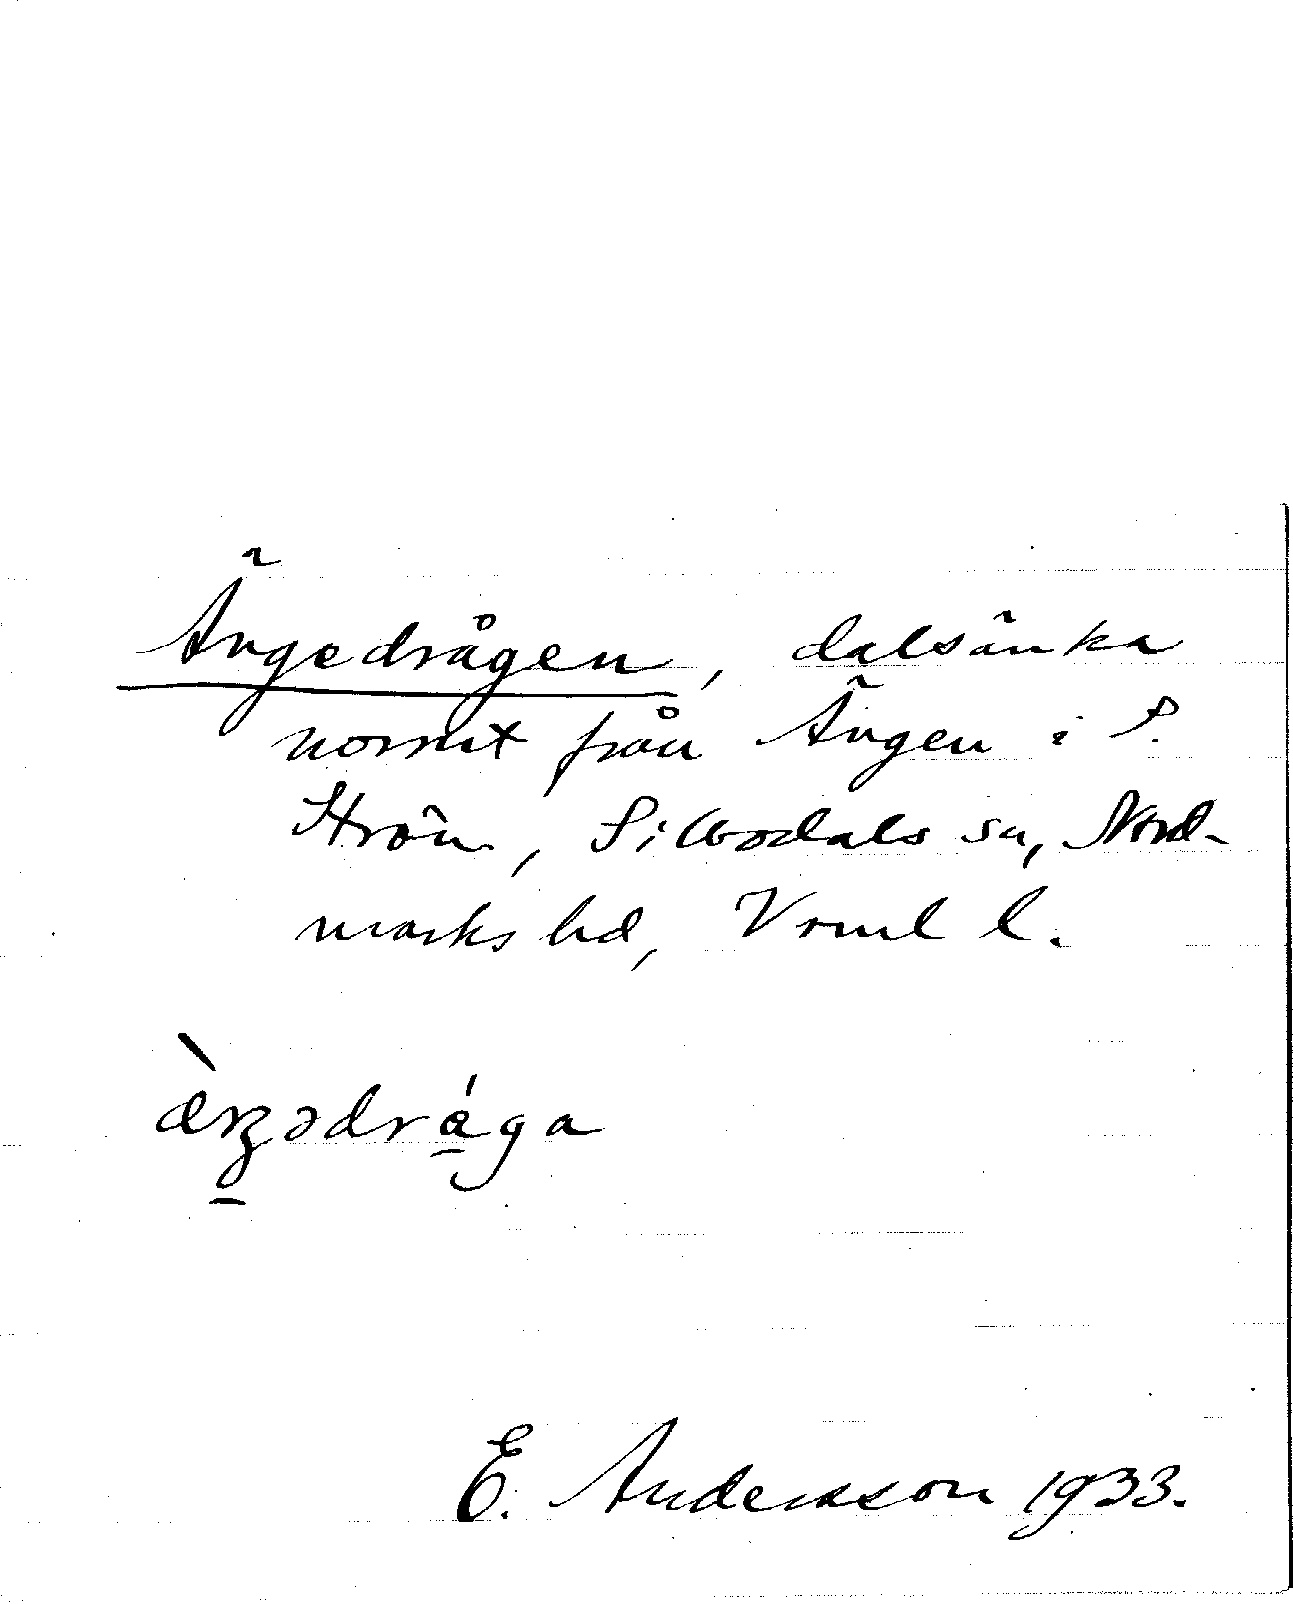 Ängedrågen, dalsänka
norrut från Ängen i S.
Strön, Sillbodals sn, Nord-
marks hd, Vrml l.
E. Andersson 1933.